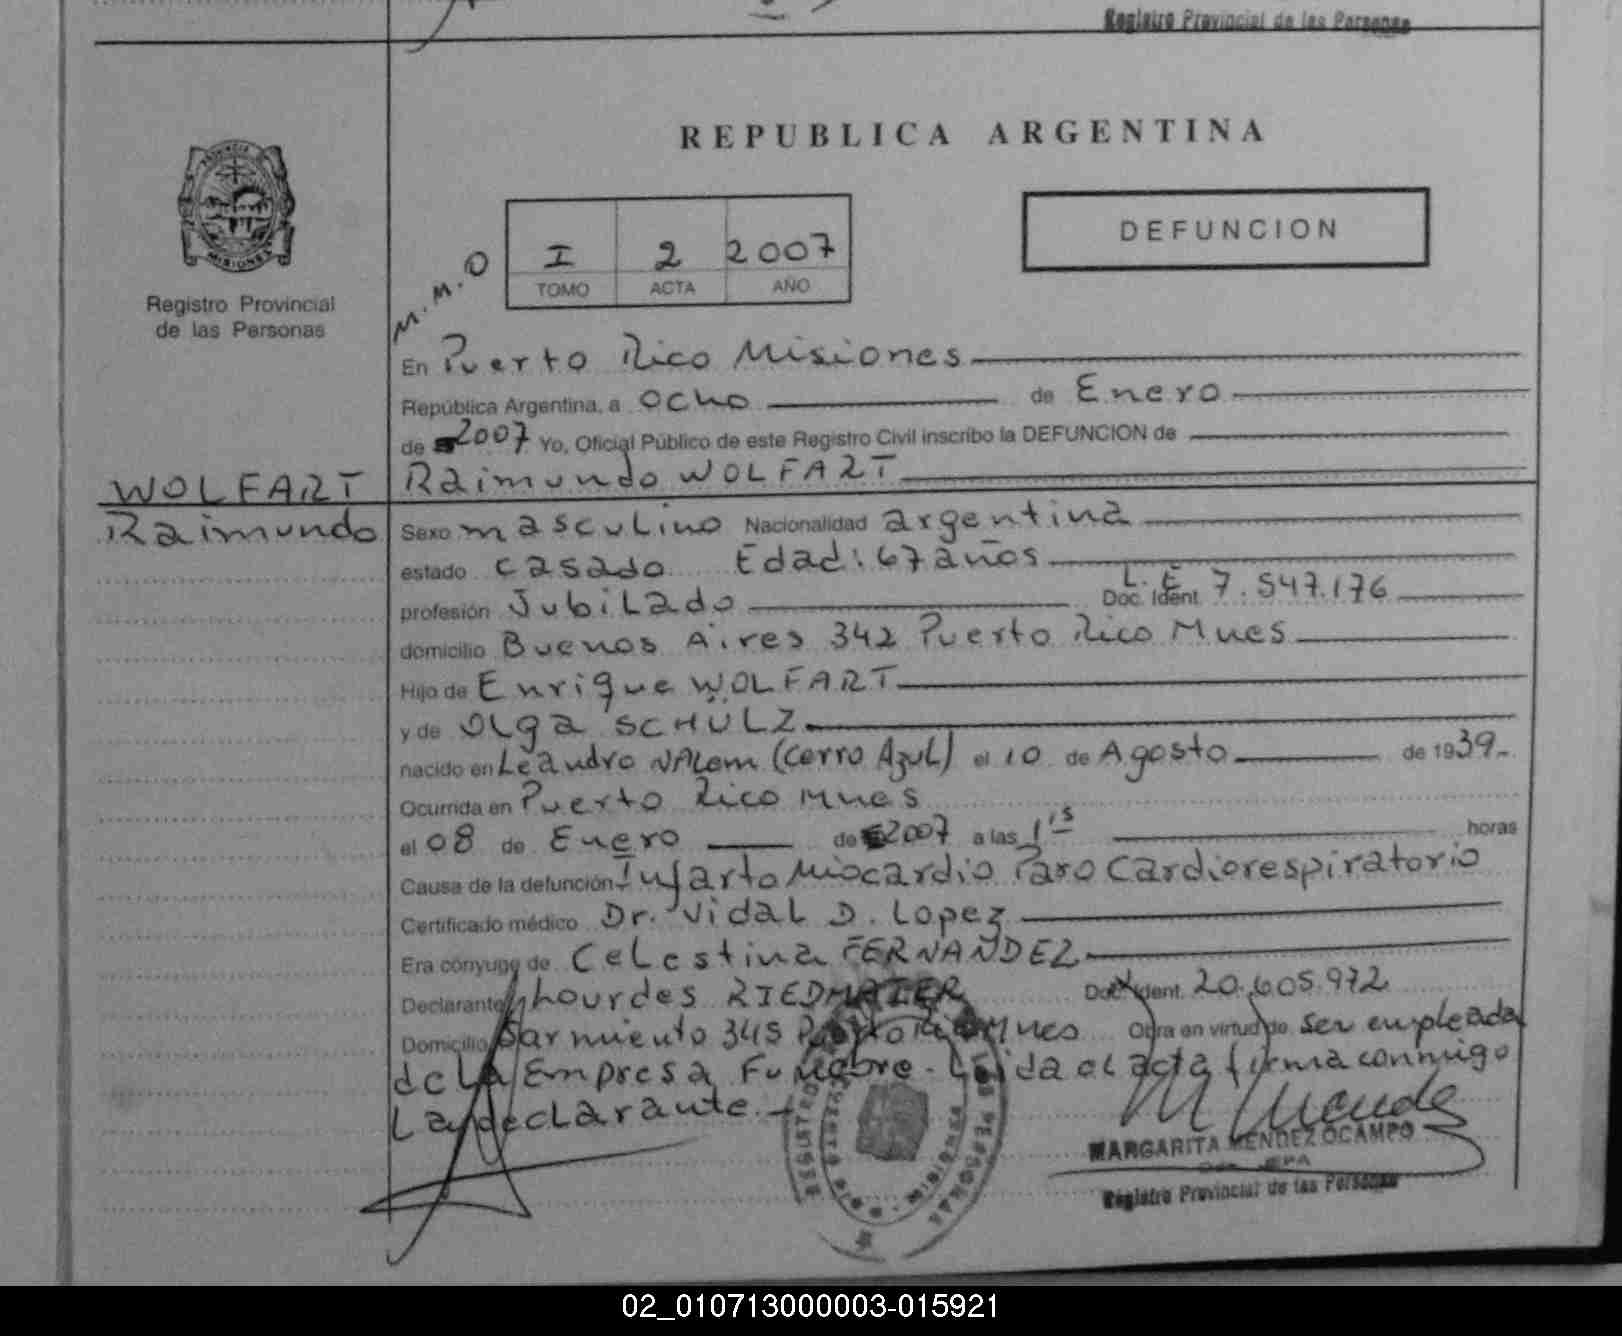 Registro Provincial de las Personas
REPUBLICA ARGENTINA
PROVINCIA DE
MISIONES
Registro Provincial
de las Personas
M.M.O
I 2 2007
TOMO ACTA AÑO
DEFUNCION
En Puerto Rico Misiones
República Argentina, a ocho de Enero
de 2007 Yo, Oficial Público de este Registro Civil inscribo la DEFUNCION de
WOLFART Raimundo WOLFART
Raimundo Sexo masculino Nacionalidad argentina
estado casado Edad: 67 años
profesión Jubilado Doc. Ident. L.E. 7.547.176
domicilio Buenos Aires 342 Puerto Rico Mnes
Hijo de Enrique WOLFART
y de Olga SCHÜLZ
nacido en Leandro N Alem (Cerro Azul) el 10 de Agosto de 1939.
Ocurrida en Puerto Rico Mnes
el 08 de Enero de 2007 a las 1,15 horas
Causa de la defunción Infarto Miocardio Paro Cardiorespiratorio
Certificado médico Dr. Vidal D. Lopez
Era cónyuge de Celestina FERNANDEZ
Declarante Lourdes RIEDMAIER Doc. Ident. 20.605.972
Domicilio Sarmiento 345 Puerto Rico Mnes Obra en virtud de ser empleada
de la Empresa Funebre. Leida el acta firma conmigo
La declarante.
MARGARITA MENDEZ OCAMPO
Registro Provincial de las Personas
02_010713000003-015921